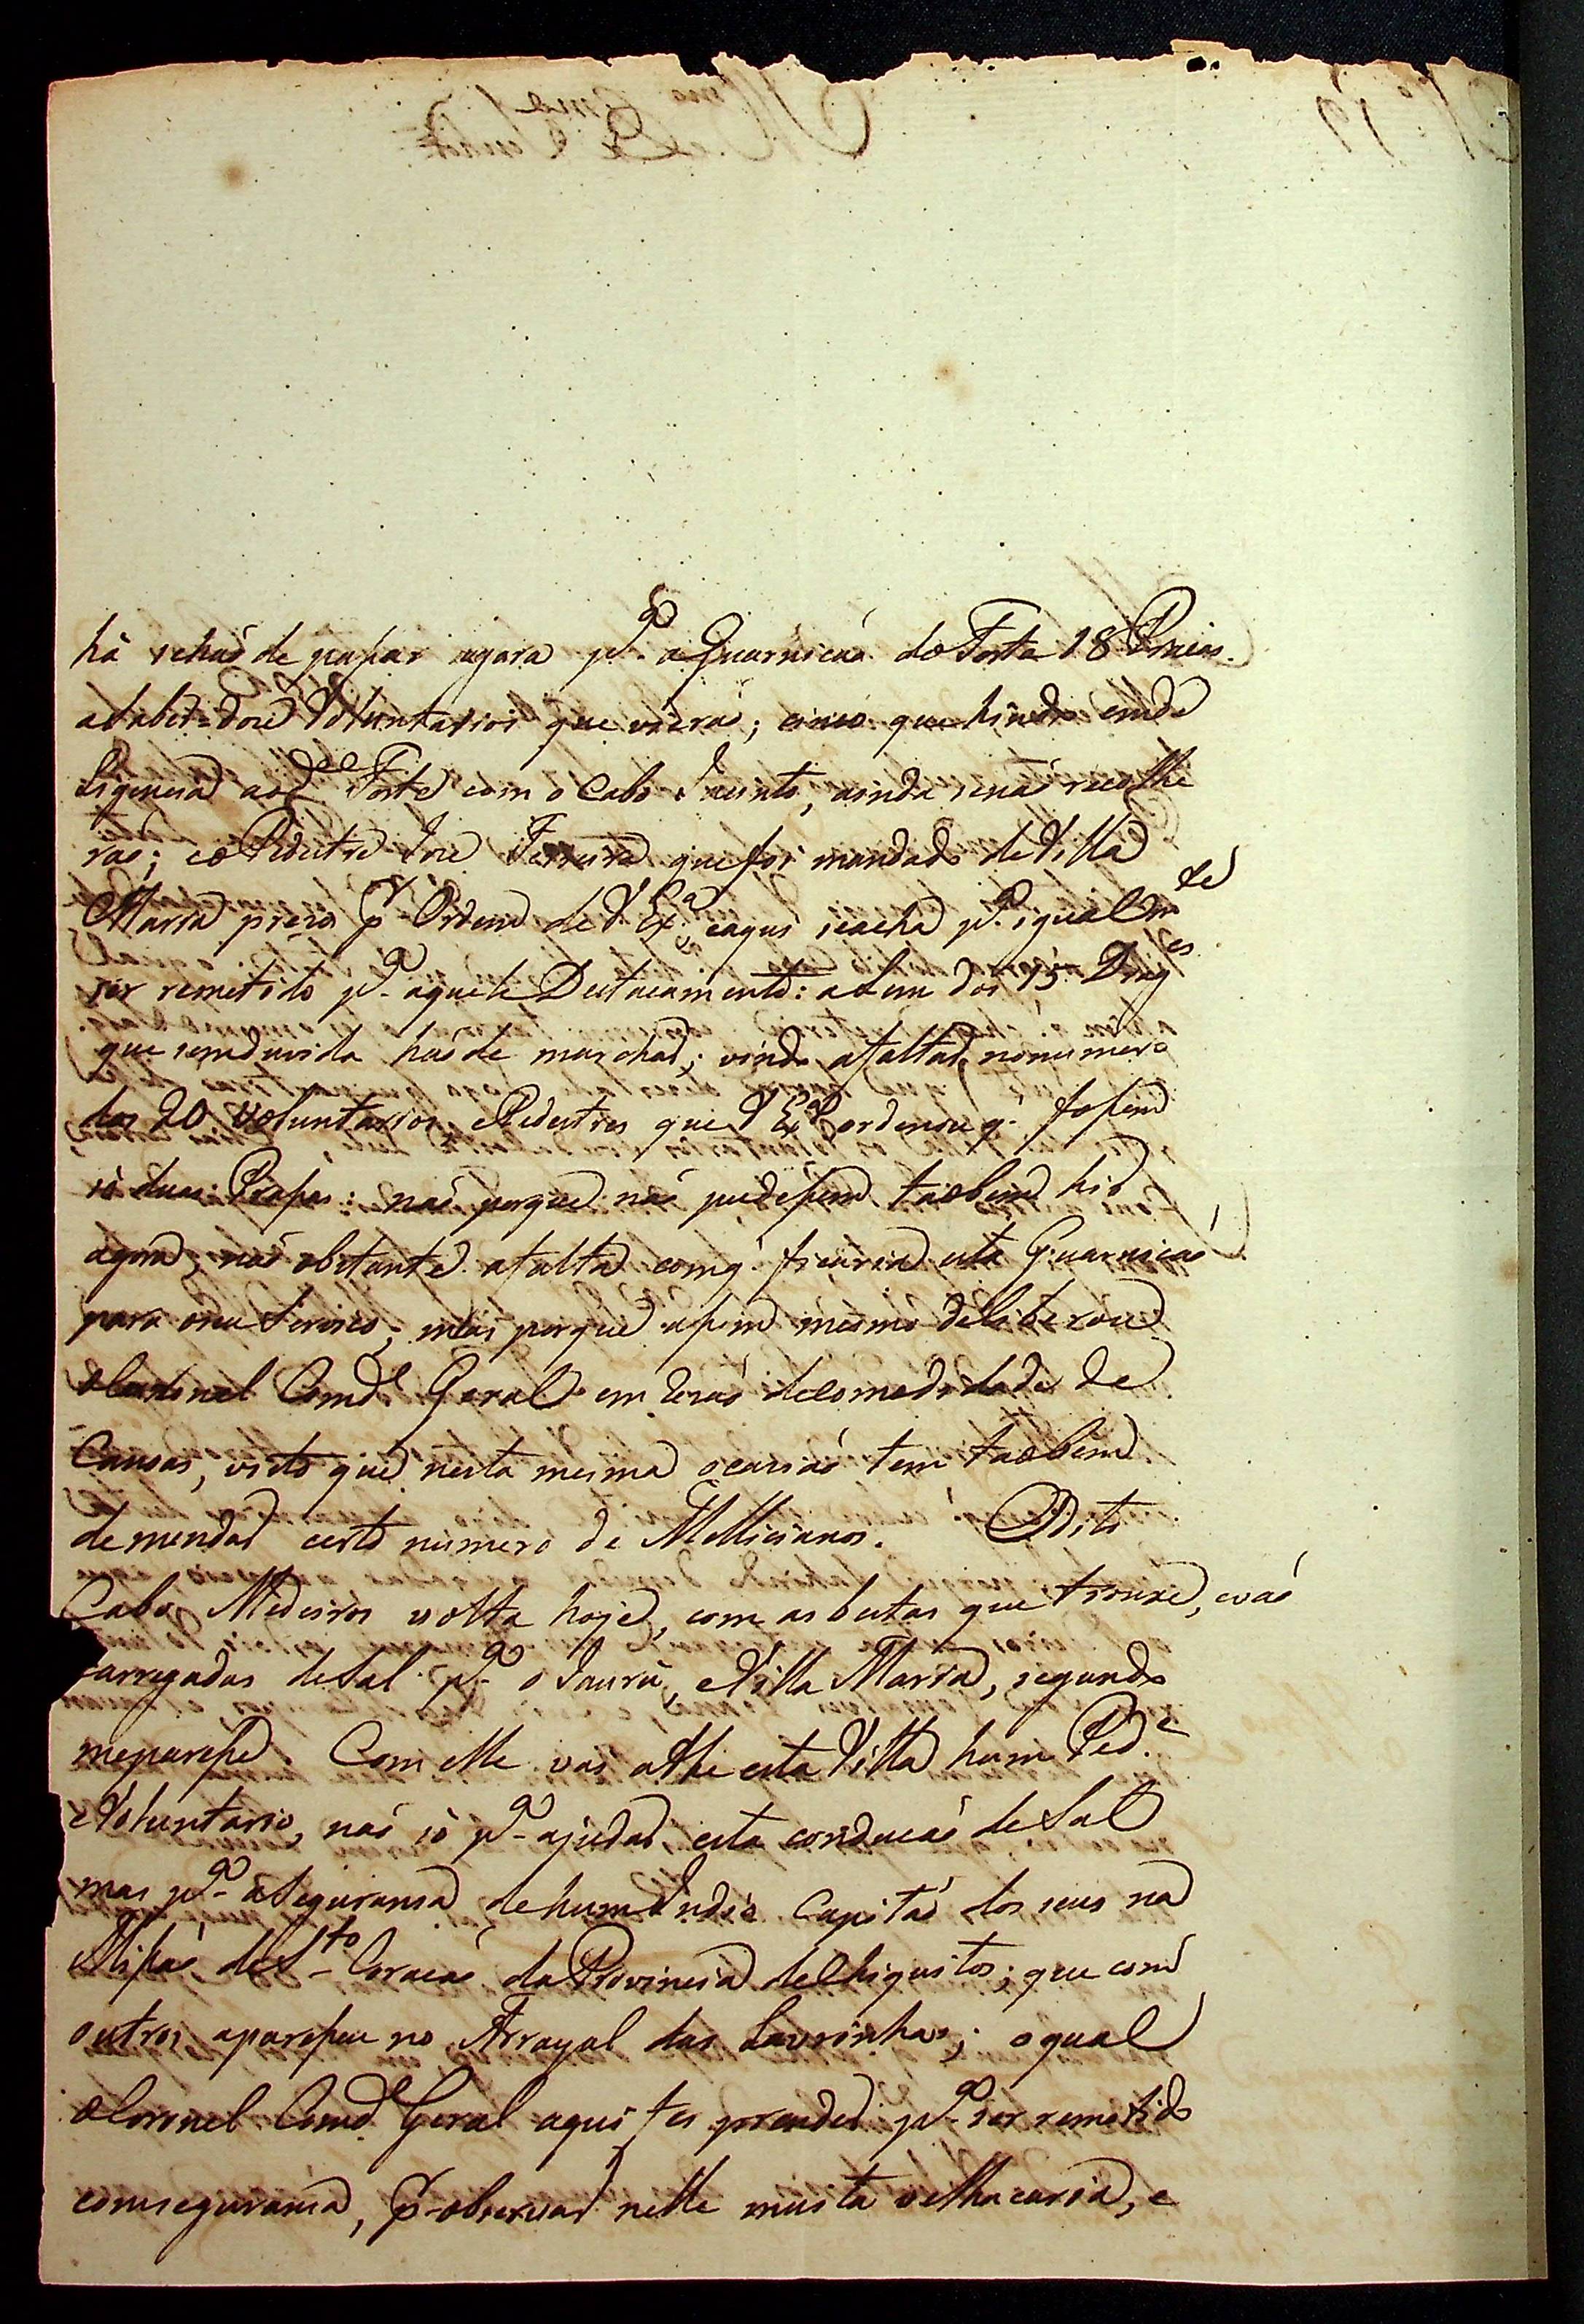 há sehaõ de passar agora p.ª a Guarniçaõ do Forte 18 Praças.
a saber = doze Voluntarios que vieraõ; cinco que hindo em de
ligencia ao d.º Forte com o Cabo Jacinto, ainda senaõ recolhe
raõ; e o Pedestre Joze Ferreira que foi mandado de Villa
Maria prezo p. Ordem de V Ex.ª, e aqui se acha p.ª igual m.te
ser remetido p.ª aquele Destacamento: alem dos 15 Drag.es
que sem duvida haõ de marchar; vindo a faltar no numero
dos 20 Voluntarios e Pedestres que V Ex.ª ordenou q. fossem
só duas Praças: naõ porque naõ pudessem taobem hir
agora, naõ obstante a falta com q. ficaria esta Guarniçaõ
para o seu Serviço; mas porque assim mesmo deliberou
o Coronel Comd.e Geral em rezaõ de comodidade de
Canoas, visto que nesta mesma ocasiaõ tem taobem
de mandar certo numero de Millicianos. O Dito
Cabo Medeiros volta hoje, com as bestas que trouxe, e vaõ
carregadas de Sal p.ª o Jaurú, e Villa Maria, segundo
me paresse. Com elle vai athe esta Villa hum Ped.e
e Voluntario, naõ só p.ª ajudar esta conduçaõ de Sal
mas p.ª a Seguransa de hum Indio Capitaõ dos seus na
Missaõ de S.to Coraçaõ da Provincia de Chiquitos; que com
outros aparesseu no Arrayal das Lavrinhas; o qual
o Coronel Comd.e Geral aqui fes prender p.ª ser remetido
com seguransa, p. observar nelle muita velhacaria, e